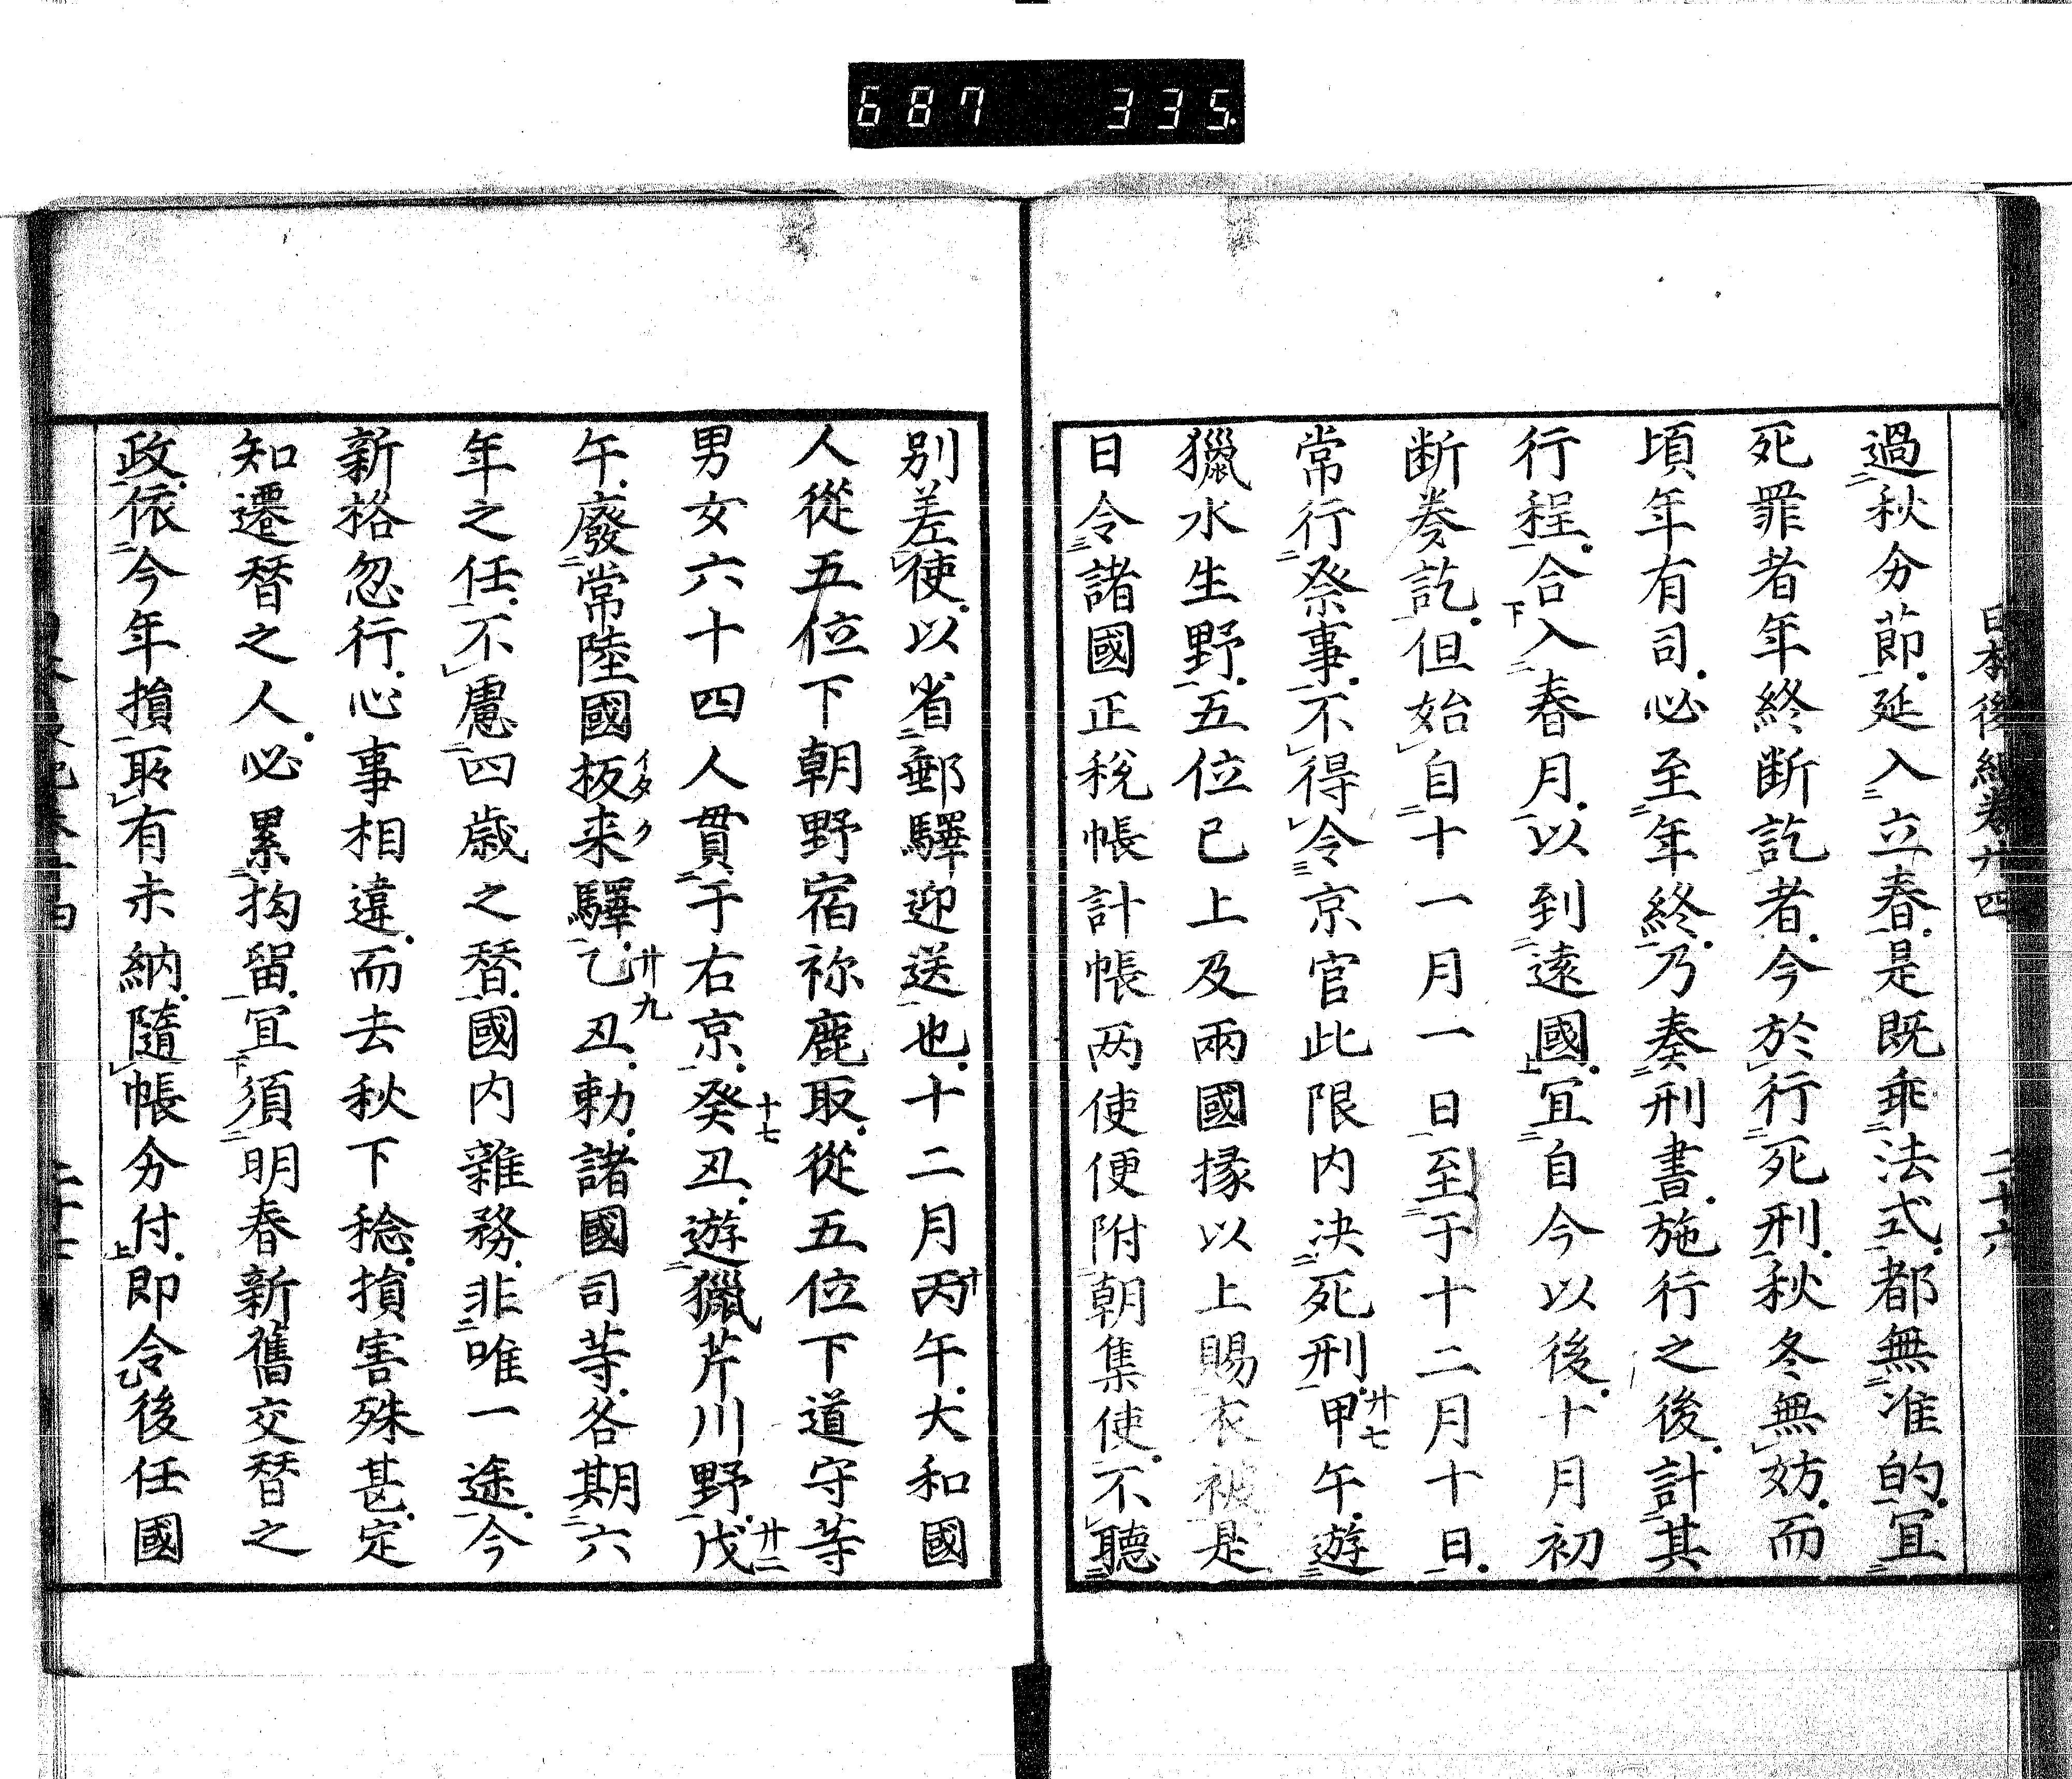 687 335
日本後紀卷廿四 二十六
過秋分節延入立春是既乖法式都無准的冝
死罪者年終断訖者今於行死刑秋冬無妨而
頃年有司必至年終乃奏刑書施行之後計其
行程合入春月以到遠國冝自今以後十月初
断奏訖但始自十一月一日至于十二月十日
常行祭事不得令京官此限内决死刑甲午遊
獵水生野五位已上及兩國掾以上賜衣被是
日令諸國正税帳計帳两使便附朝集使不聴
別差使以省郵驛迎送也十二月丙午大和國
人從五位下朝野宿祢鹿取從五位下道守等
男女六十四人貫于右京癸丑遊獵芹川野戊
午廢常陸國板来驛乙丑勅諸國司等各期六
年之任不慮四歳之替國内雜務非唯一途今
新格忽行心事相違而去秋下稔損害殊甚定
知遷替之人必累拘留冝須明春新舊交替之
政依今年損耴有未納隨帳分付即令後任國